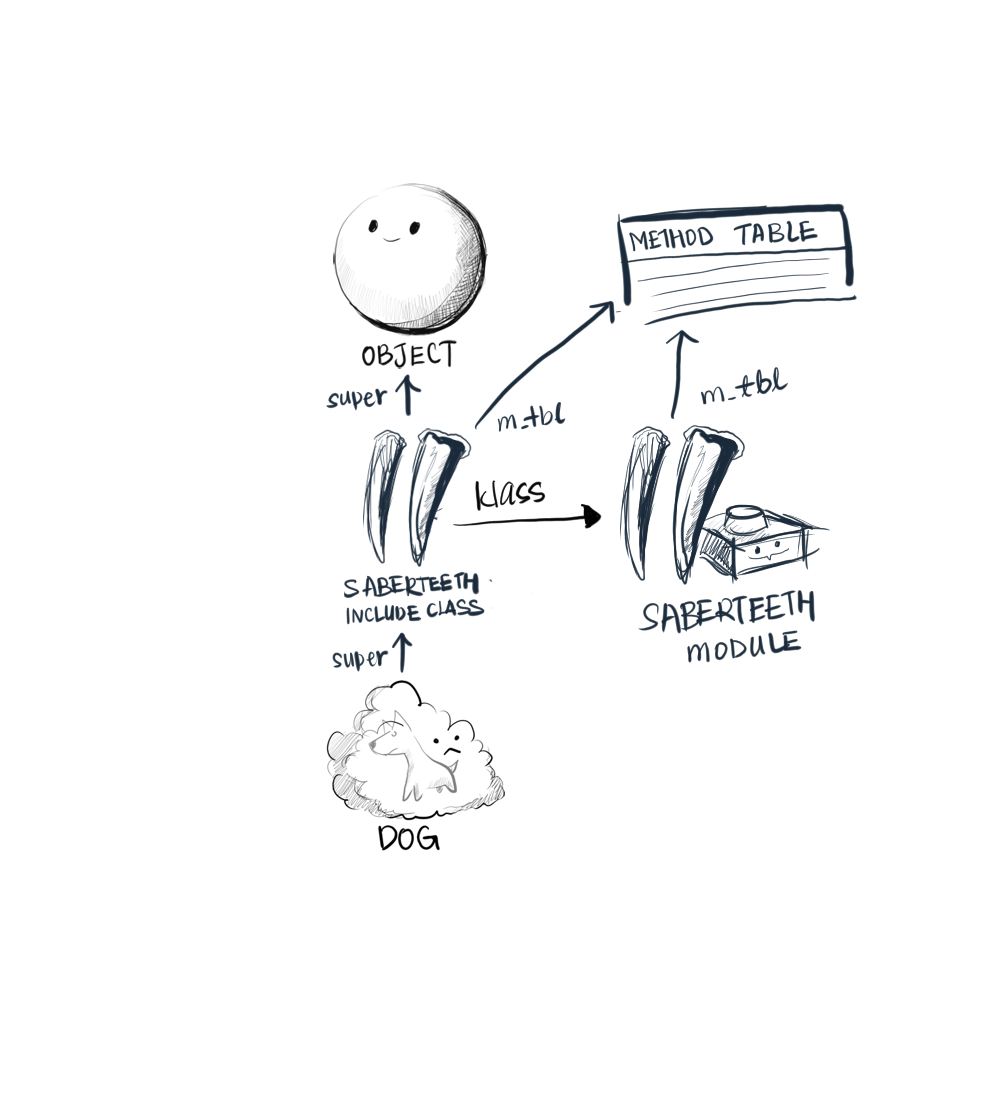 METHOD TABLE
OBJECT
super
m_tbl
m_tbl
klass
SABERTEETH
INCLUDE CLASS
SABERTEETH
MODULE
super
DOG